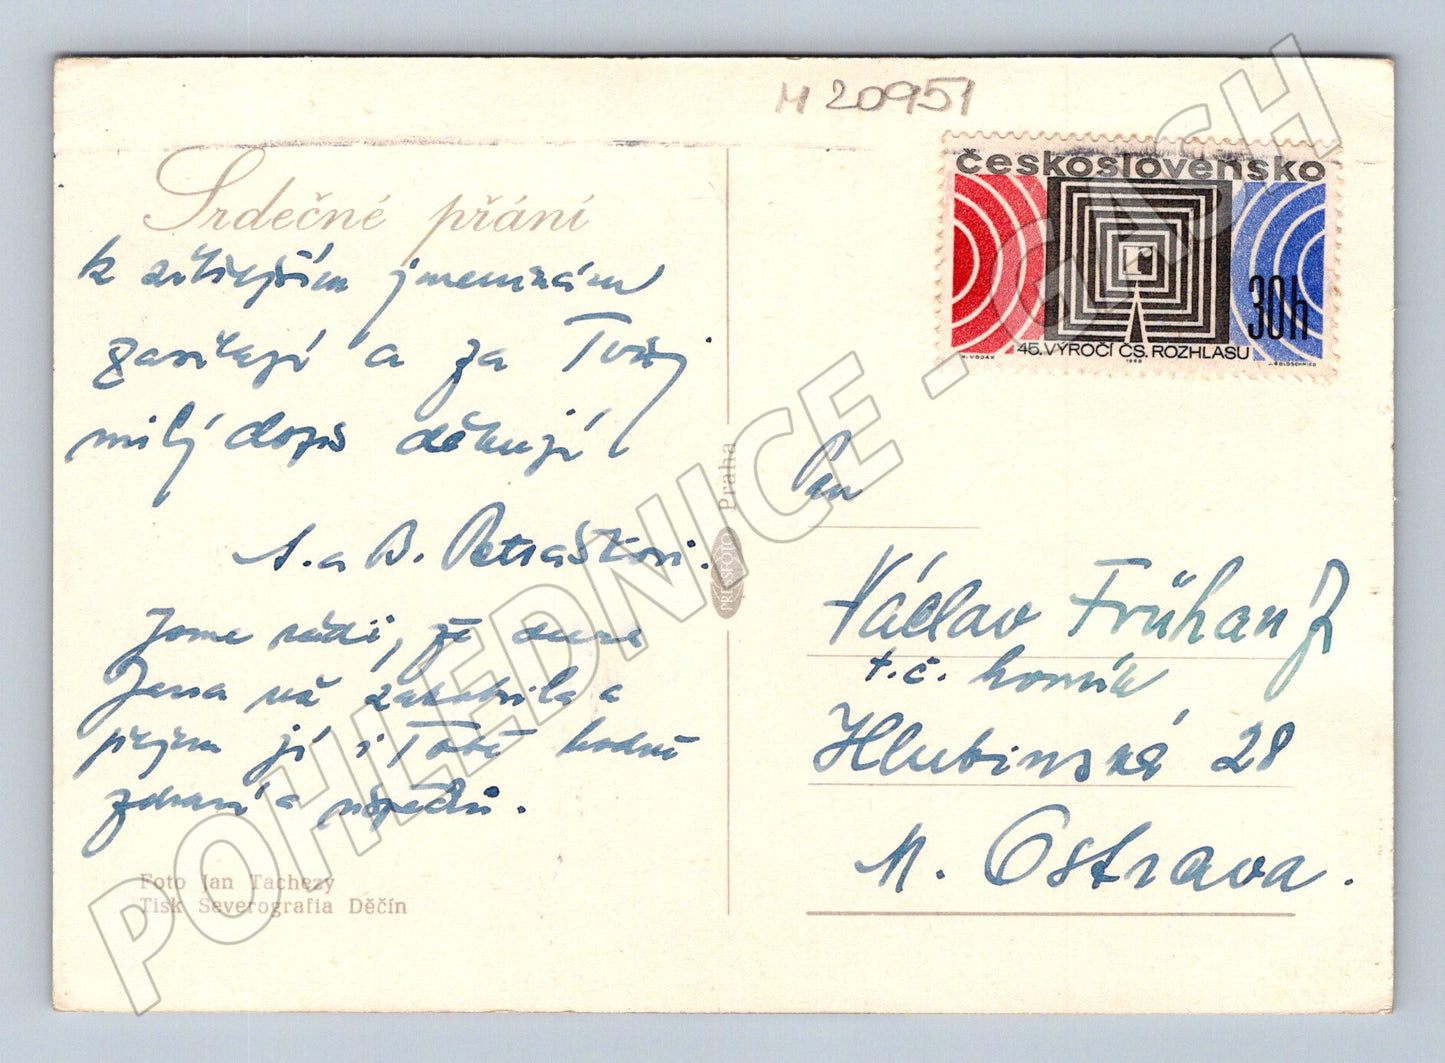 M 20951
československo
30h
45. VÝROČÍ ČS. ROZHLASU
V. VODÁK 1968 J. GOLDSCHMIED
Srdečné přání
k zítřejším jmeninám
zasílají a za Tvůj
milý dopis děkují
A. a B. Petraštovi.
Jsme rádi, že
Jana vá a
přejem jí i Tobě hodně
zdraví a úspěchů.
Foto Jan Tachezy
Tisk Severografia Děčín
PRESSFOTO Praha
Pan
Václav Frühauf
t.č. horník
Hlubinská 28
M. Ostrava.
POHLEDNICE - GASH